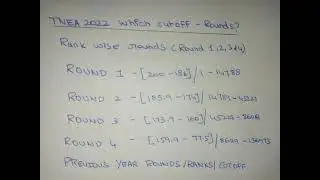 TNEA 2022 which cutoff - Rounds?
Rank wise rounds (Round 1,2,3&4)
ROUND 1 - [200 - 186] / 1 - 14788
ROUND 2 - [185.9 - 174] /
ROUND 3 - [173.9 - 160] /
ROUND 4 - [159.9 - 77.5] /
PREVIOUS YEAR ROUNDS/RANKS/CUTOFF